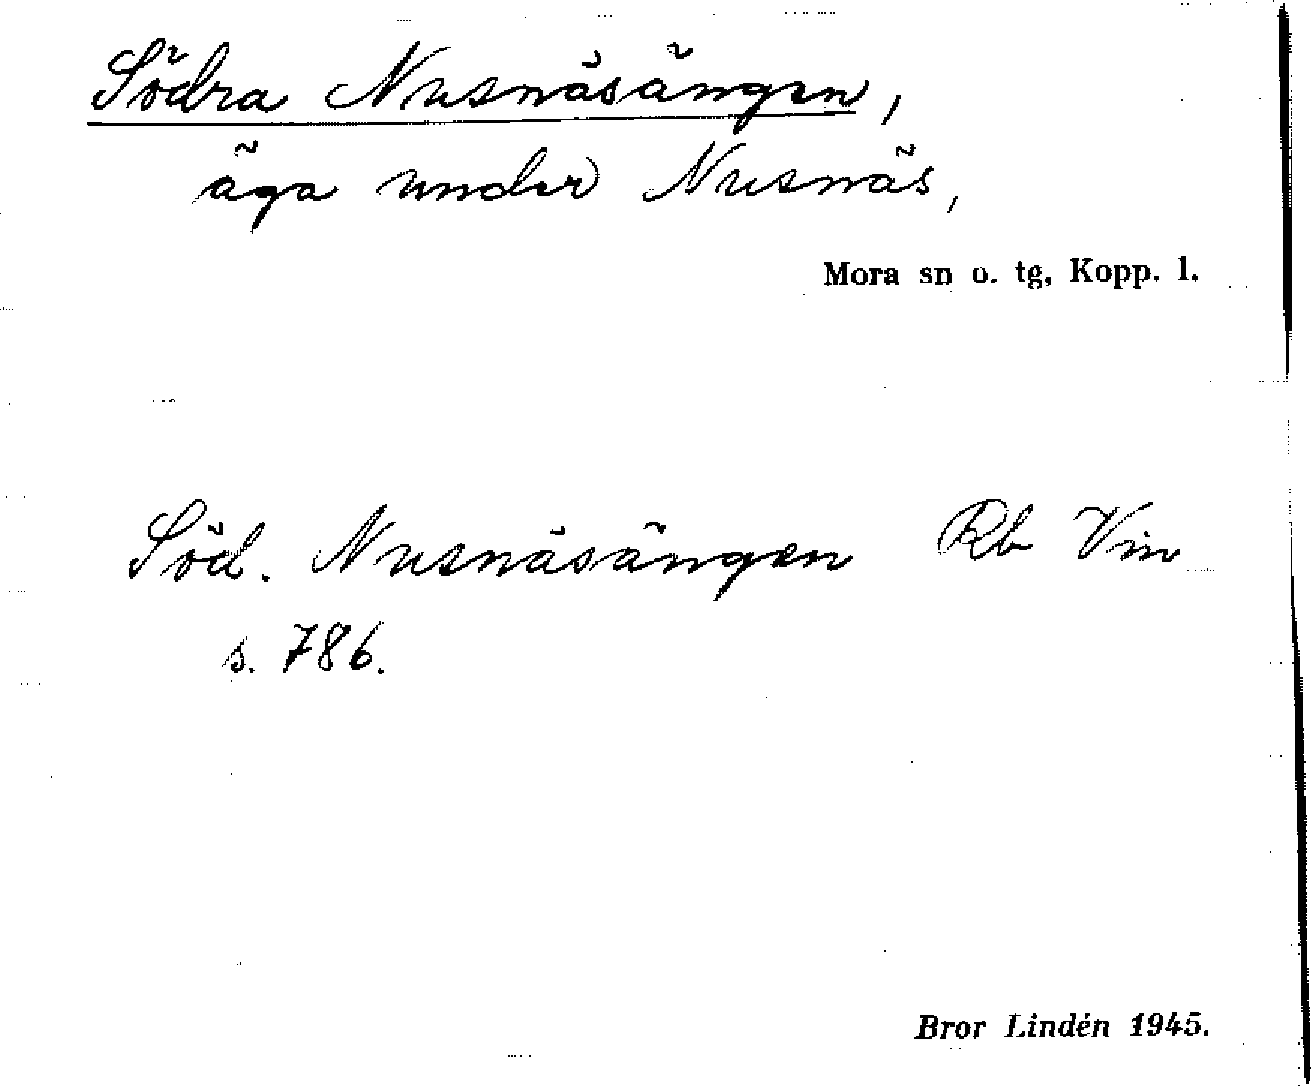 Södra Nusnäsängen,
äga under Nusnäs,
Mora sn o. tg, Kopp. l.
Söd. Nusnäsängen Rb Vin
s. 786.
Bror Lindén 1945.